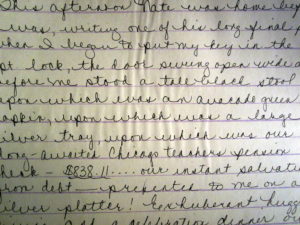 This afternoon Nate was home be
was, writing one of his long final p
when I began to put my key in the
pt lock, the door swung open wide a
before me stood a tall black stool
upon which was an avocado green
napkin, upon which was a large
silver tray, upon which was our
long-awaited Chicago teachers pension
check - $838.11.... our instant salvati
from debt - presented to me on a
silver platter! Exhuberant hugg
and a celebration dinner o